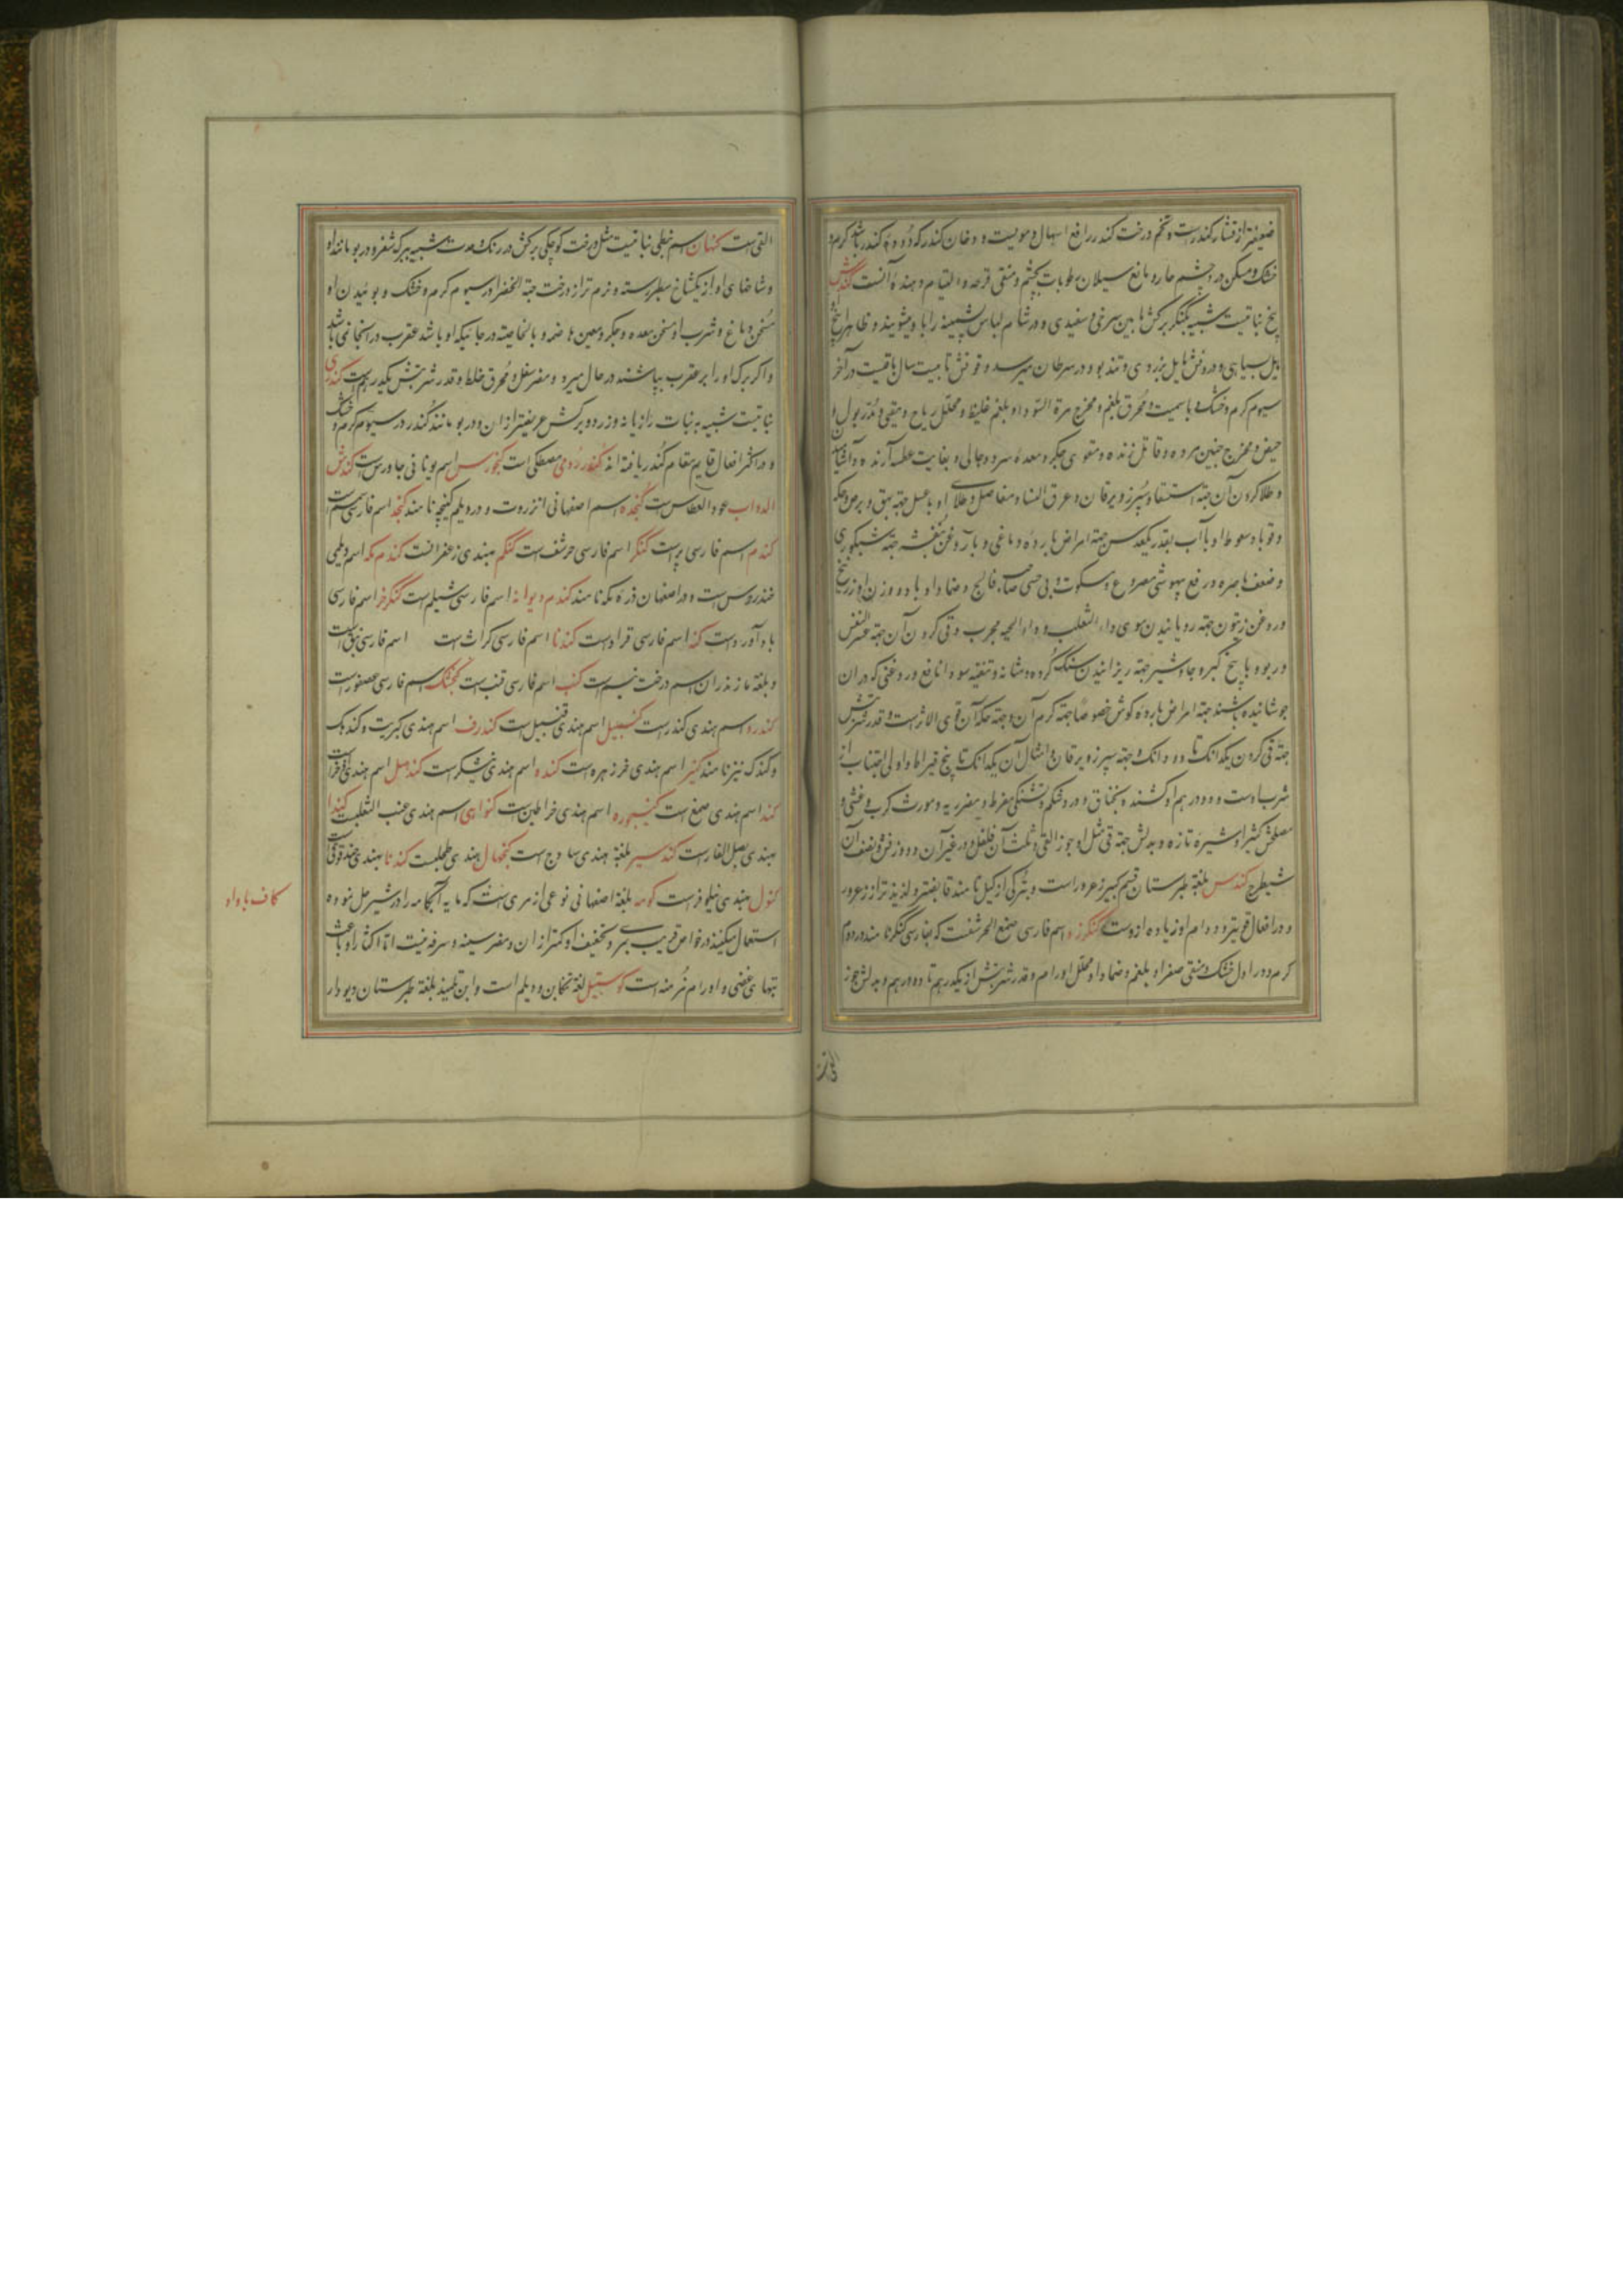 ضعیفتر از قشار کندرست و تخم درخت کندر رافع اسهال دمویست و دخان کندر که دوده کندر باشد گرم و
خشک و مسکن درد چشم حار و مانع سیلان رطوبات بچشم و منقی قرحه و التیام دهنده آنست کندش
بیخ نباتیست شبیه بکنگر برکش مابین سرخی و سفیدی و در شام لباس پشمینه را باو میشویند و ظاهر بیخ او
مایل بسیاهی و درونش مایل بزردی و تند بو و در سرطان میرسد و قوتش تا بیست سال باقیست در آخر
سیوم گرم و خشک و با سمیت و محرق بلغم و مخرج مرة السودا و بلغم غلیظ و محلل ریاح و مقیی و مدر بول و
حیض و مخرج جنین مرده و قاتل زنده و مقوی جگر و معده سرد و جالی و بغایت عطسه آرنده و آشامیدن
و طلا کردن آن جهة استسقا و سپرز و یرقان و عرق النسا و مفاصل و طلای او با عسل جهة بهق و برص و حکه
و قوبا و سعوط او با آب بقدر یکعدس جهة امراض بارده دماغی و با روغن بنفشه جهة شبکوری
و ضعف باصره و رفع بیهوشی مصروع و سکوت و بی حسی صاحب فالج و ضماد او با دو وزن او زرنیخ
و روغن زیتون جهة رویانیدن موی داء الثعلب و داء الحیه مجرب و قی کردن آن جهة عسر النفس
و ربو و با بیخ کبر و جاوشیر جهة ریزانیدن سنگ گرده و مثانه و تنقیه سودا نافع و روغنی که در ان
جوشانیده باشند جهة امراض بارده گوش خصوصا جهة کرم آن و جهة حکه آن قوی الاثرست و قدر شربتش
جهة قی کردن یکدانک تا دو دانک و جهة سپرز و یرقان و امثال آن یکدانک تا پنج قیراط و اولی اجتناب از
شرب اوست و دو درهم او کشنده بخناق و درد شکم و تشنگی مفرط و مضر ریه و مورث کرب و غشی و
مصلحش کثیرا و شیره تازه و بدلش جهة قی مثل او جوز القی و ثلث آن فلفل و در غیر آن دو وزنش و نصف آن
شیطرج کندس بلغة طبرستان قسم کبیر زعرور است و بترکی ازکیل نامند قابضتر و لذیذ تر از زعرور
و در افعال قویتر و دوام او زیاده ازوست کنکرزد اسم فارسی صمغ الحرشفست که بفارسی کنگر نامند در دوم
گرم و در اول خشک و منقی صفرا و بلغم و ضماد او محلل اورام و قدر شربتش از یکدرهم تا دو درهم و بدلش جوز
القی
القی است کنهان اسم نبطی نباتیست مثل درخت کوچکی برکش در رنگ و مدت شبیه ببرک شقر و در بو مانند او
و شاخهای او از یکشاخ سطبر رسته و نرم تر از درخت حبة الخضرا در سیوم گرم و خشک و بوئیدن او
مسخن دماغ و شرب او مسخن معده و جگر و معین هاضمه و بالخاصیته در جائیکه او باشد عقرب در انجا نمی باشد
و اگر برک او را بر عقرب بپاشند در حال میرد و مضر سفل و محرق خلط و قدر شربتش یکدرهم است کندی
نباتیست شبیه به نبات رازیانه و زرد و برکش عریضتر از ان و در بو مانند کندر در سیوم گرم و خشک
و در اکثر افعال قایم مقام کندر یافته اند کندر رومی مصطکی است کنجورس اسم یونانی جاورس است کندش
الدواب عود العطاس است کنجده اسم اصفهانی انزروت و در دیلم کنجیچه نامند کنجد اسم فارسی سمسم است
کندم اسم فارسی برّ است کنگر اسم فارسی حرشف است کنگم بهندی زعفرانست کندم مکه اسم دیلمی
خندروس است و در اصفهان ذره مکه نامند کندم دیوانه اسم فارسی شیلم است کنگر خر اسم فارسی
باد آورد است کنه اسم فارسی قراد است کندنا اسم فارسی کراث است اسم فارسی نبق است
و بلغة مازندران اسم درخت نیم است کنب اسم فارسی قنب است کنجشک اسم فارسی عصفور است
کندرو اسم هندی کندر است کنبیل اسم هندی قنبیل است کندرف اسم هندی کبریت و کندهک
و کندک نیز نامند کنیر اسم هندی خرزهره است کنده اسم هندی نیشکر است کندهل اسم هندی است
کند اسم هندی صمغ است کنیجوره اسم هندی خراطین است کنوا اسم هندی عنب الثعلب است کندا
بهندی بصل الفار است کندسیر بلغة هندی ساذج است کنجهال هندی طحلبست کندنا بهندی حندقوقی است
کنول بهندی نیلوفر است کومه بلغة اصفهانی نوعی از مری است که مایه آبکامه را در شیر حل نموده
استعمال میکنند در خواص قریب بمری و تخفیف او کمتر از ان و مضر سینه و سرفه نیست اما اکثار او باعث
تبهای عفنی و اورام مزمنه است کوستیل لغة تنکابن و دیلم است و ابن تلمیذ بلغة طبرستان دیودار
کاف با واو